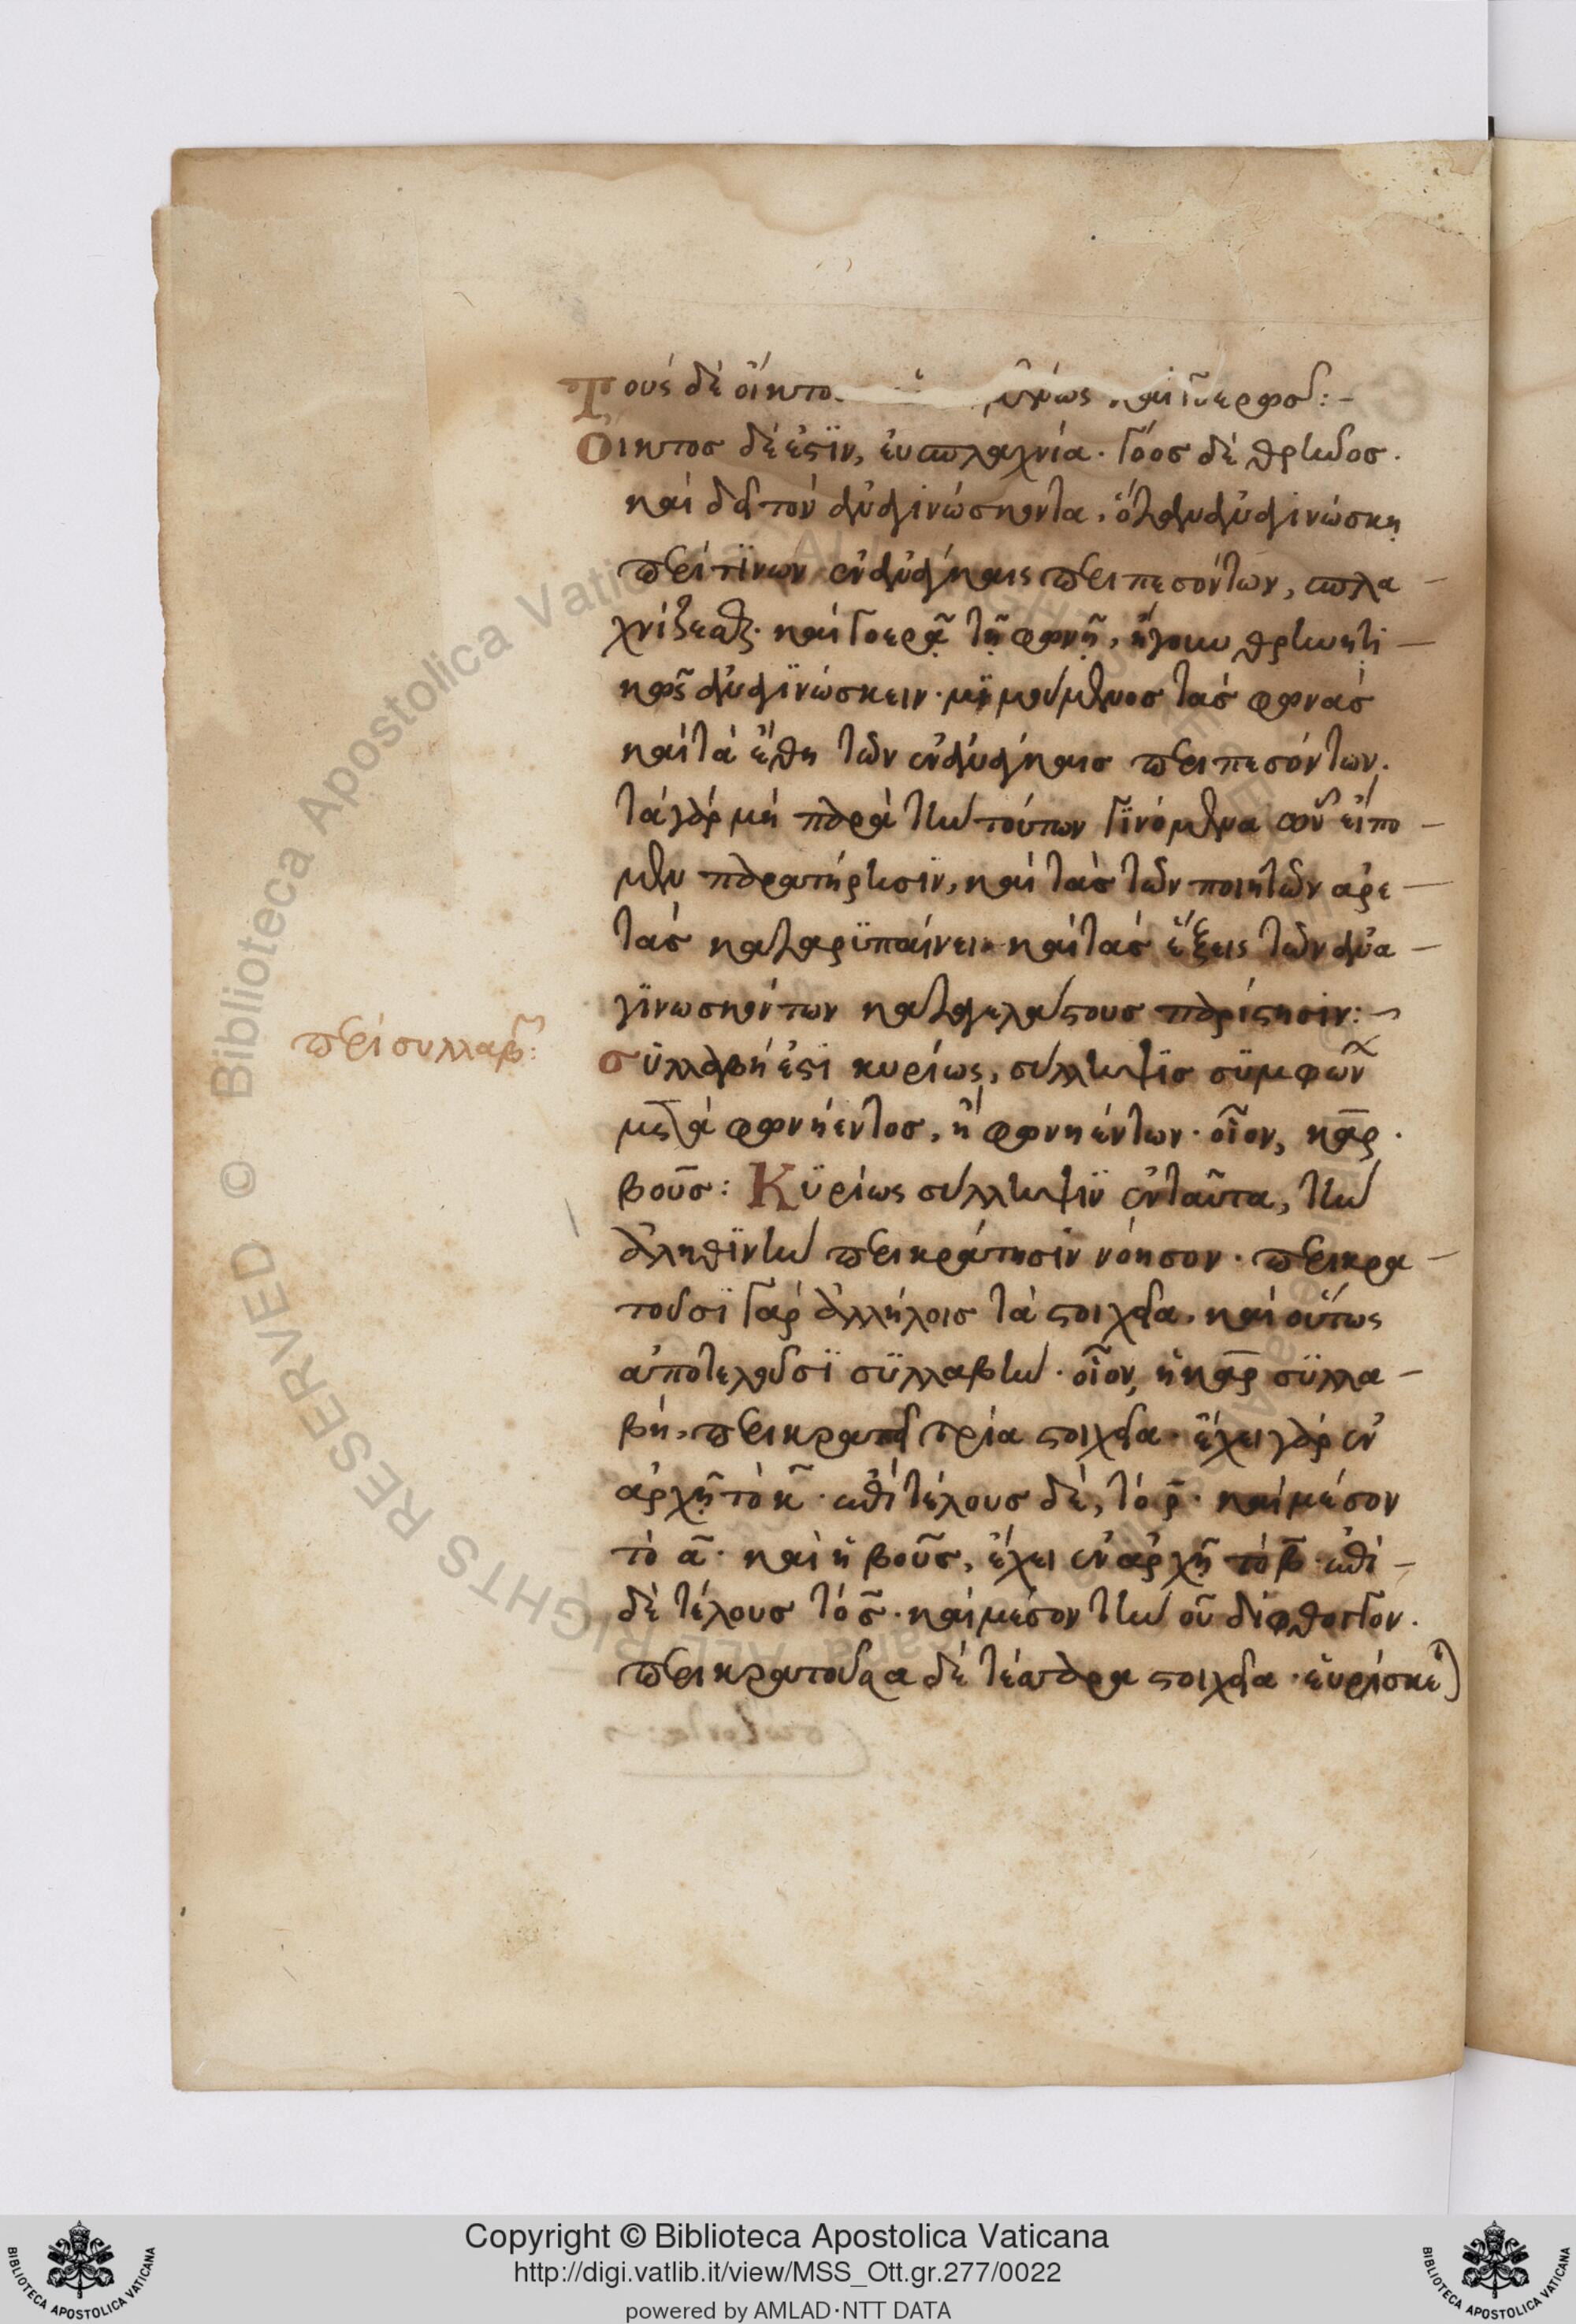 Τοὺς δὲ οἴκτο μένως καὶ γοερῶς:-
Οἶκτος δέ ἐστϊν, εὐσπλαχνία· γόος δὲ θρῆνος·
καὶ δεῖ τὸν ἀναγινώσκοντα, ὅταν ἀναγινώσκῃ
περὶ τϊνων ἐν ἀνάγκαις περιπεσόντων, σπλα-
χνίζεσθαι· καὶ γοερᾷ τῇ φωνῇ, ἤγουν θρηνητι-
κῶς ἀναγϊνώσκειν· μϊμούμενος τὰς φωνὰς
καὶ τὰ ἔθη τῶν ἐν ἀνάγκαις περιπεσόντων·
τὰ γὰρ μὴ παρὰ τὴν τούτων γϊνόμενα ὧν εἴπο-
μεν παρατήρησϊν, καὶ τὰς τῶν ποιητῶν ἀρε-
τὰς καταρϋπαίνει· καὶ τὰς ἕξεις τῶν ἀνα-
γϊνωσκόντων καταγελάστους παρίστησιν:-
περὶ συλλαβῆς:
σϋλλαβή ἐστϊ κυρίως, σύλληψϊς σϋμφών
μετὰ φωνήεντος, ἢ φωνηέντων· οἷον, καρ·
βοῦς: Κϋρίως σύλληψϊν ἐνταῦτα, τὴν
ἀληθϊνὴν περικράτησϊν νόησον· περικρα-
τοῦσϊ γὰρ ἀλλήλοις τὰ στοιχεῖα· καὶ οὕτως
ἀποτελοῦσϊ σϋλλαβήν· οἷον, ἡ καρ σϋλλα-
βή, περικρατεῖ τρία στοιχεῖα· ἔχει γὰρ ἐν
ἀρχῇ τὸ κ· ἐπὶ τέλους δὲ, τὸ ρ· καὶ μέσον
τὸ α· καὶ ἡ βοῦς, ἔχει ἐν ἀρχῇ τὸ β· ἐπὶ-
δὲ τέλους τὸ σ· καὶ μέσον τὴν ου δίφθογγον·
περικρατοῦσα δὲ τέσσαρα στοιχεῖα· εὑρίσκε
Copyright © Biblioteca Apostolica Vaticana
http://digi.vatlib.it/view/MSS_Ott.gr.277/0022
powered by AMLAD·NTT DATA